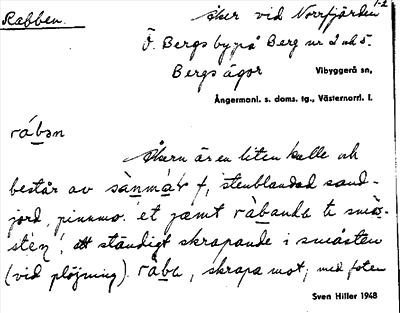 Rabben.
åker vid Norrfjärden 1-2
Ö. Bergs by på Berg nr 2 och 5.
Bergs ägor
Vibyggerå sn,
Ångermanl. s. doms. tg., Västernorrl. l.
råbən
Åkern är en liten kulle och
består av sànmá f, stenblandad sand-
jord, pinnmo. et jæmt ràbandə
sten, ett ständigt skrapande i småsten
(vid plöjning). råba, skrapa mot, med foten
Sven Hiller 1948